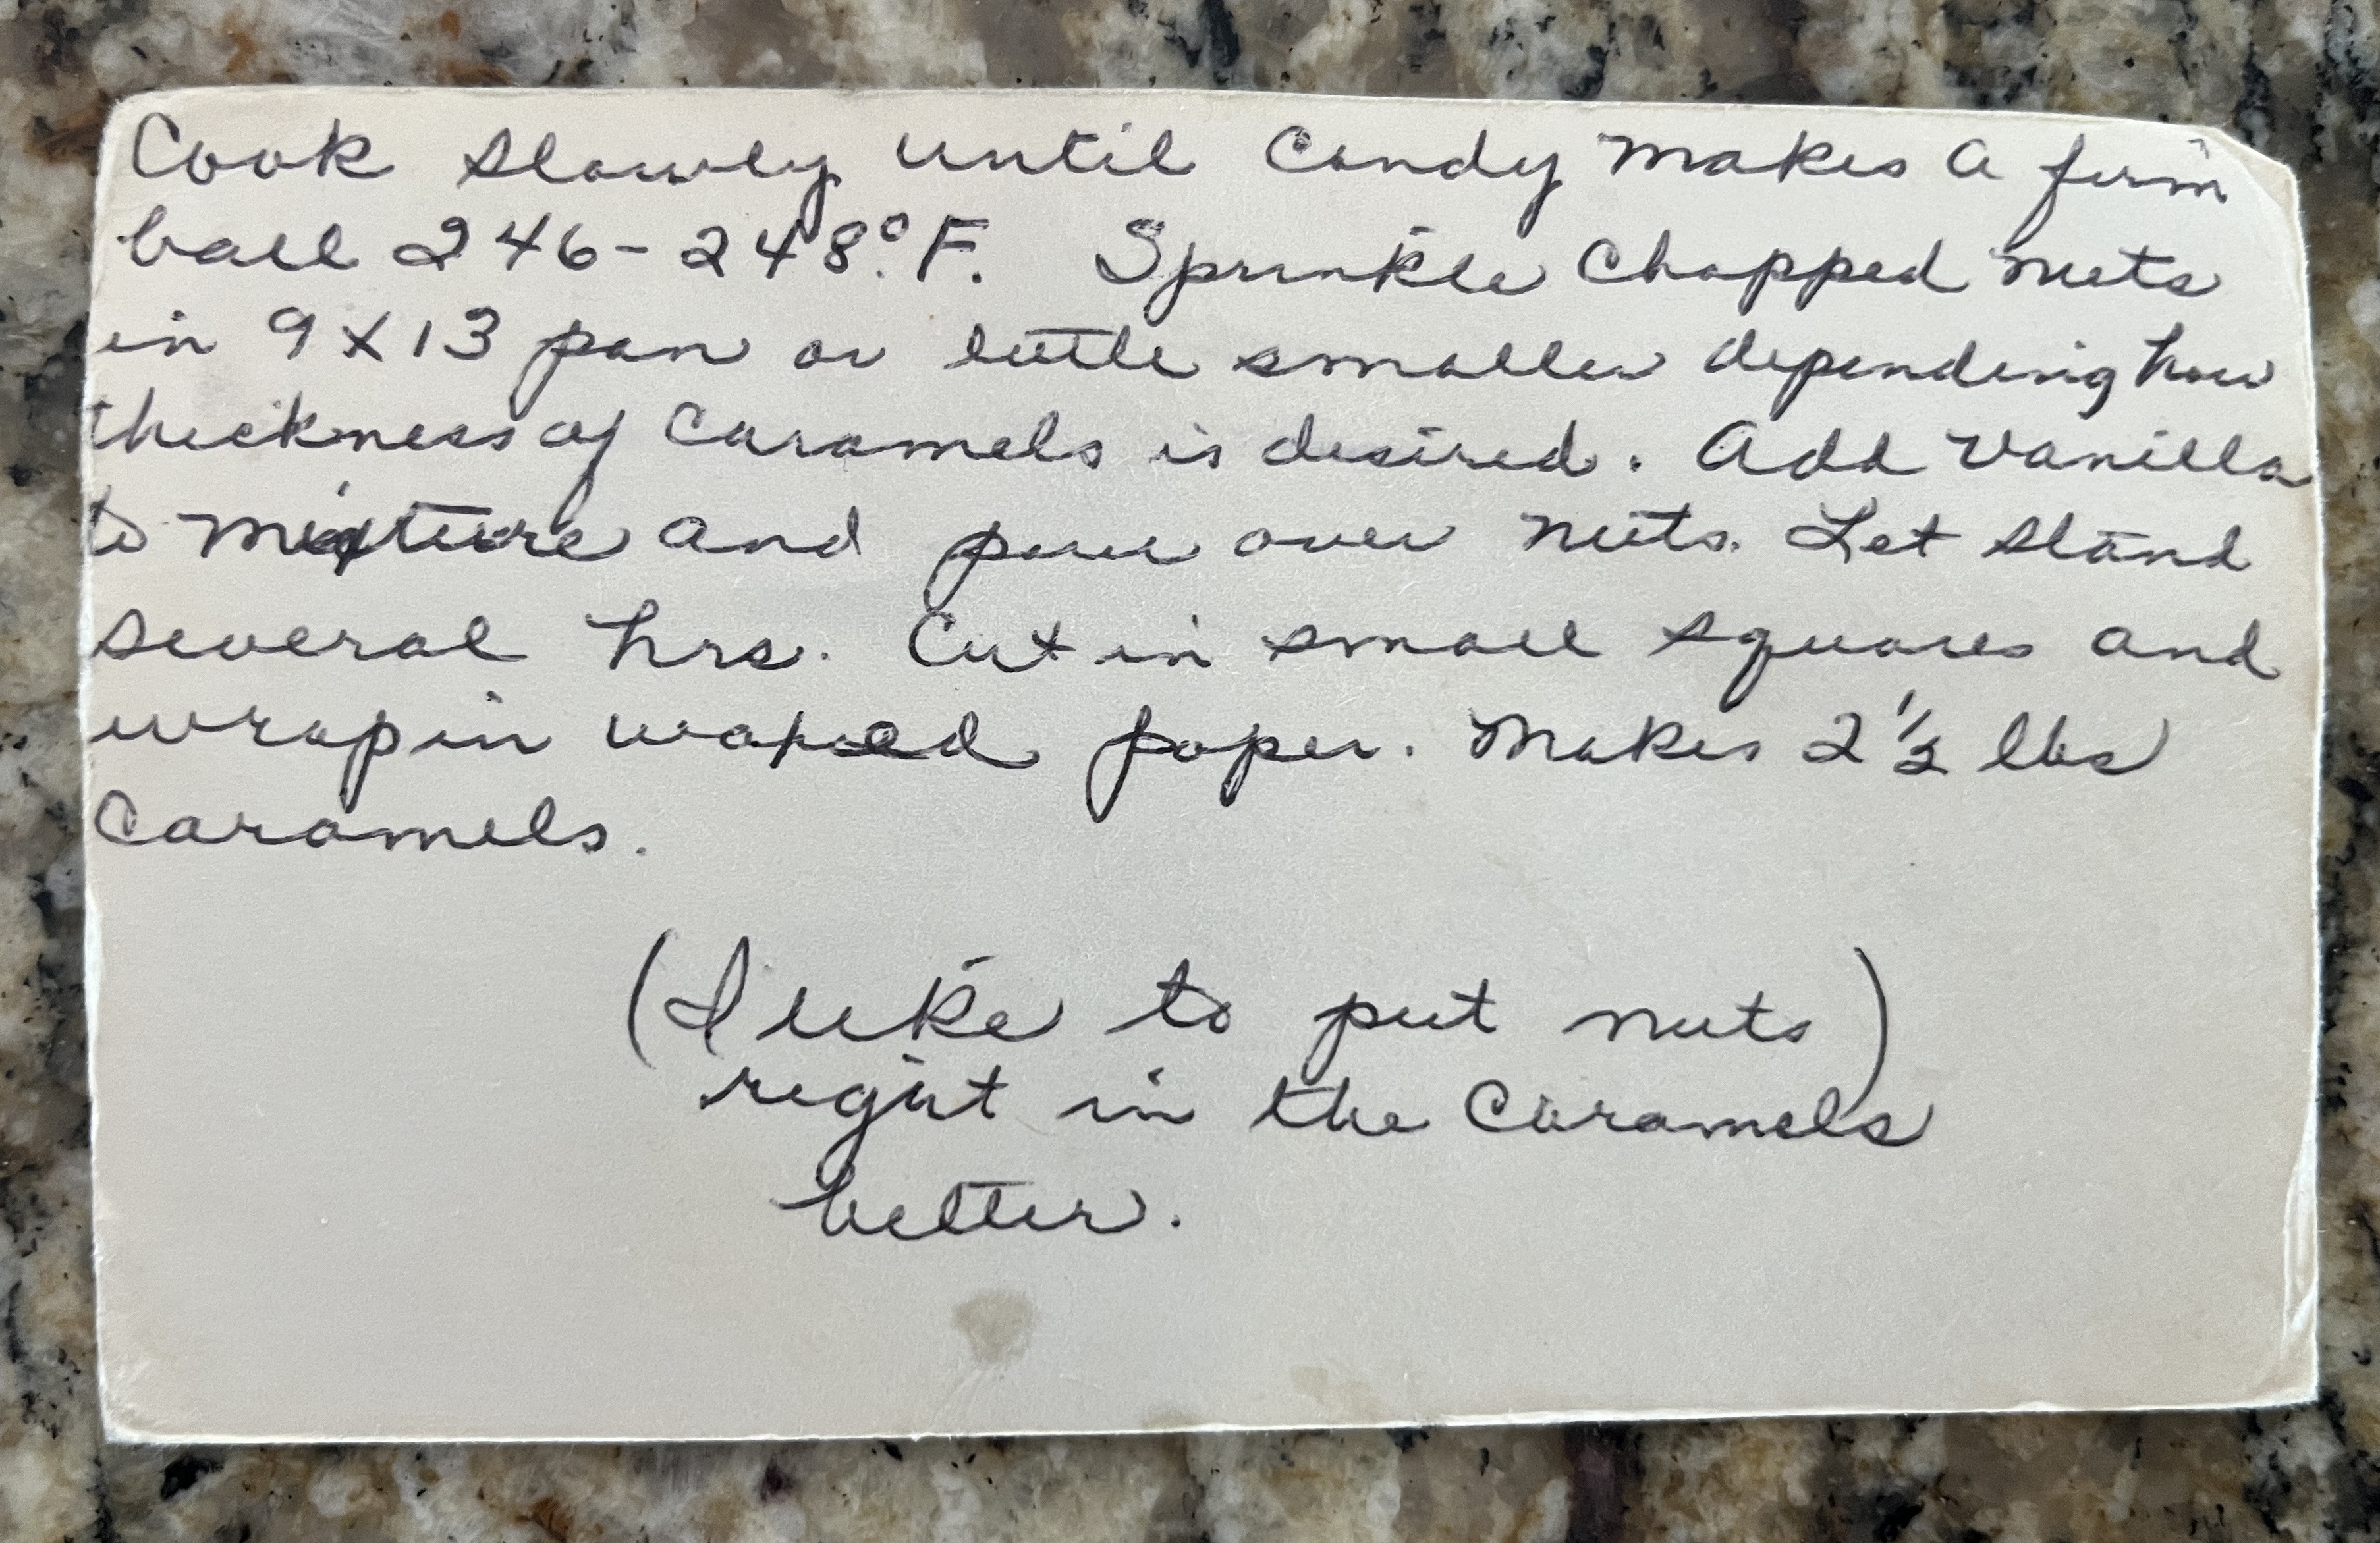 Cook slowly until candy makes a firm
ball 246-248°F. Sprinkle chopped nuts
in 9 X 13 pan or little smaller depending how
thickness of caramels is desired. Add vanilla
to mixture and pour over nuts. Let stand
several hrs. Cut in small squares and
wrap in waxed paper. Makes 2 1/2 lbs
Caramels.
(I like to put nuts)
right in the Caramels
better.